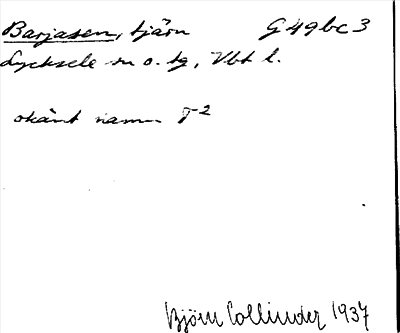 Barjasen, tjärn G 49bc3
Lycksele sn o. tg, Vbt l.
okänt namn T²
Björn Collinder 1937